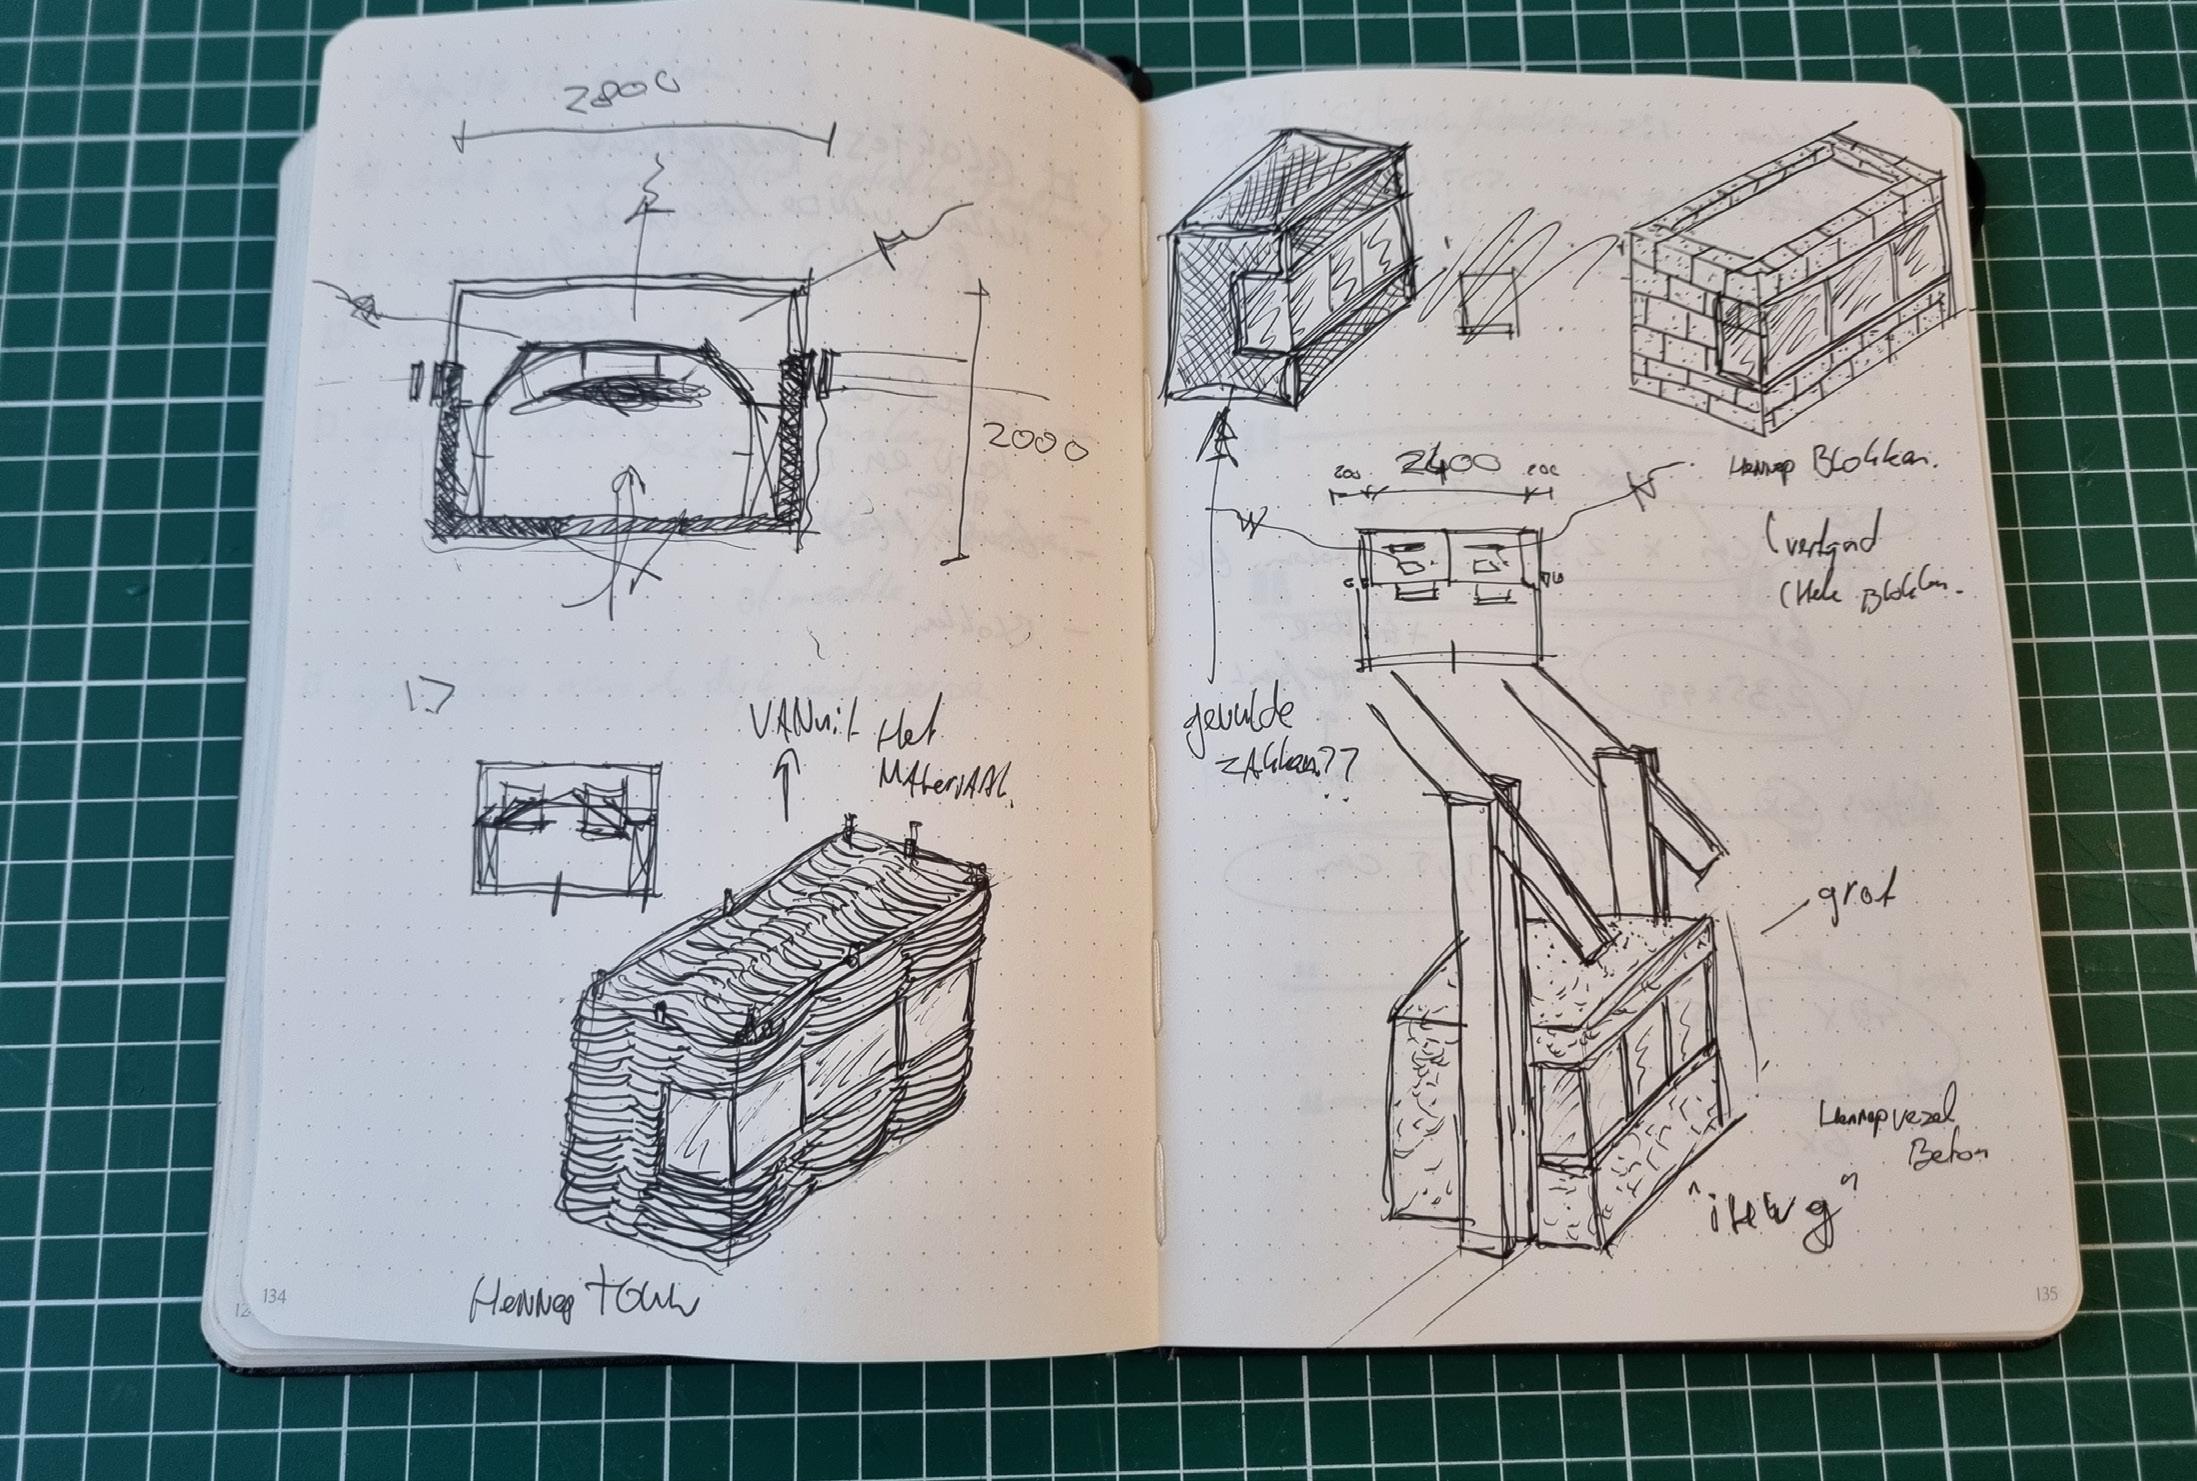 2800
2000
VANuit Het
MAteriAAL.
Hennep touw
134
Hennep Blokken.
200 2400 200
(vertand
(Hele Blokken.
gevulde
zAkken??
grot
Hennepvezel
Beton
135